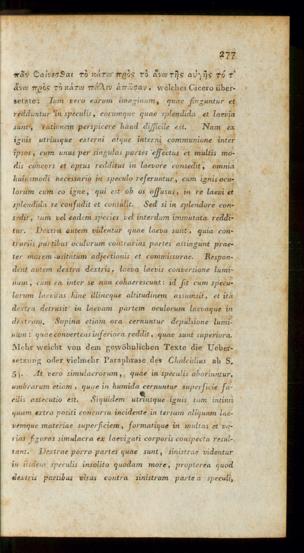 277
πᾶν φαίνεσθαι τὸ κάτω πρὸς τὸ ἄνω τῆς αὐγῆς τό τ'
ἄνω πρὸς τὸ κάτω πάλιν ἀπῶσαν. welches Cicero über-
setzte: Iam vero earum imaginum, quae finguntur et
redduntur in speculis, eorumque quae splendida et laevia
sunt, rationem perspicere haud difficile est. Nam ex
ignis utriusque externi atque interni communione inter
ipsos, cum unus per singulas partes effectus et multis mo-
dis concors et aptus redditus in laevore consedit, omnia
huiusmodi necessario in speculo referuntur, cum ignis ocu-
lorum cum eo igne, qui est ob os offusus, in re laevi et
splendida se confudit et contulit. Sed si in splendore con-
sedit, tum vel eadem species vel interdum immutata reddi-
tur. Dextra autem videntur quae laeva sunt, quia con-
trariis partibus oculorum contrarias partes attingunt prae-
ter morem usitatum adjectionis et commissurae. Respon-
dent autem dextra dextris, laeva laevis conversione lumi-
num, cum ea inter se non cohaerescunt: id fit cum specu-
lorum laevitas hinc illincque altitudinem assumsit, et ita
dextra detrusit in laevam partem oculorum laevaque in
dextram. Supina etiam ora cernuntur depulsione lumi-
num: quae convertens inferiora reddit, quae sunt superiora.
Mehr weicht von dem gewöhnlichen Texte die Ueber-
setzung oder vielmehr Paraphrase des Chalcidius ab S.
At vero simulacrorum, quae in speculis oboriuntur,
umbrarum etiam, quae in humida cernuntur superficie fa-
cilis assecutio est. Siquidem utriusque ignis tam intimi
quam extra positi concursu incidente in tersam aliquam lae-
vemque materiae superficiem, formatique in multas et va-
rias figuras simulacra ex laevigati corporis conspectu resul-
tant. Dextrae porro partes quae sunt, sinistrae videntur
in iisdem speculis insolito quodam more, propterea quod
dextris partibus visus contra sinistram partem speculi,